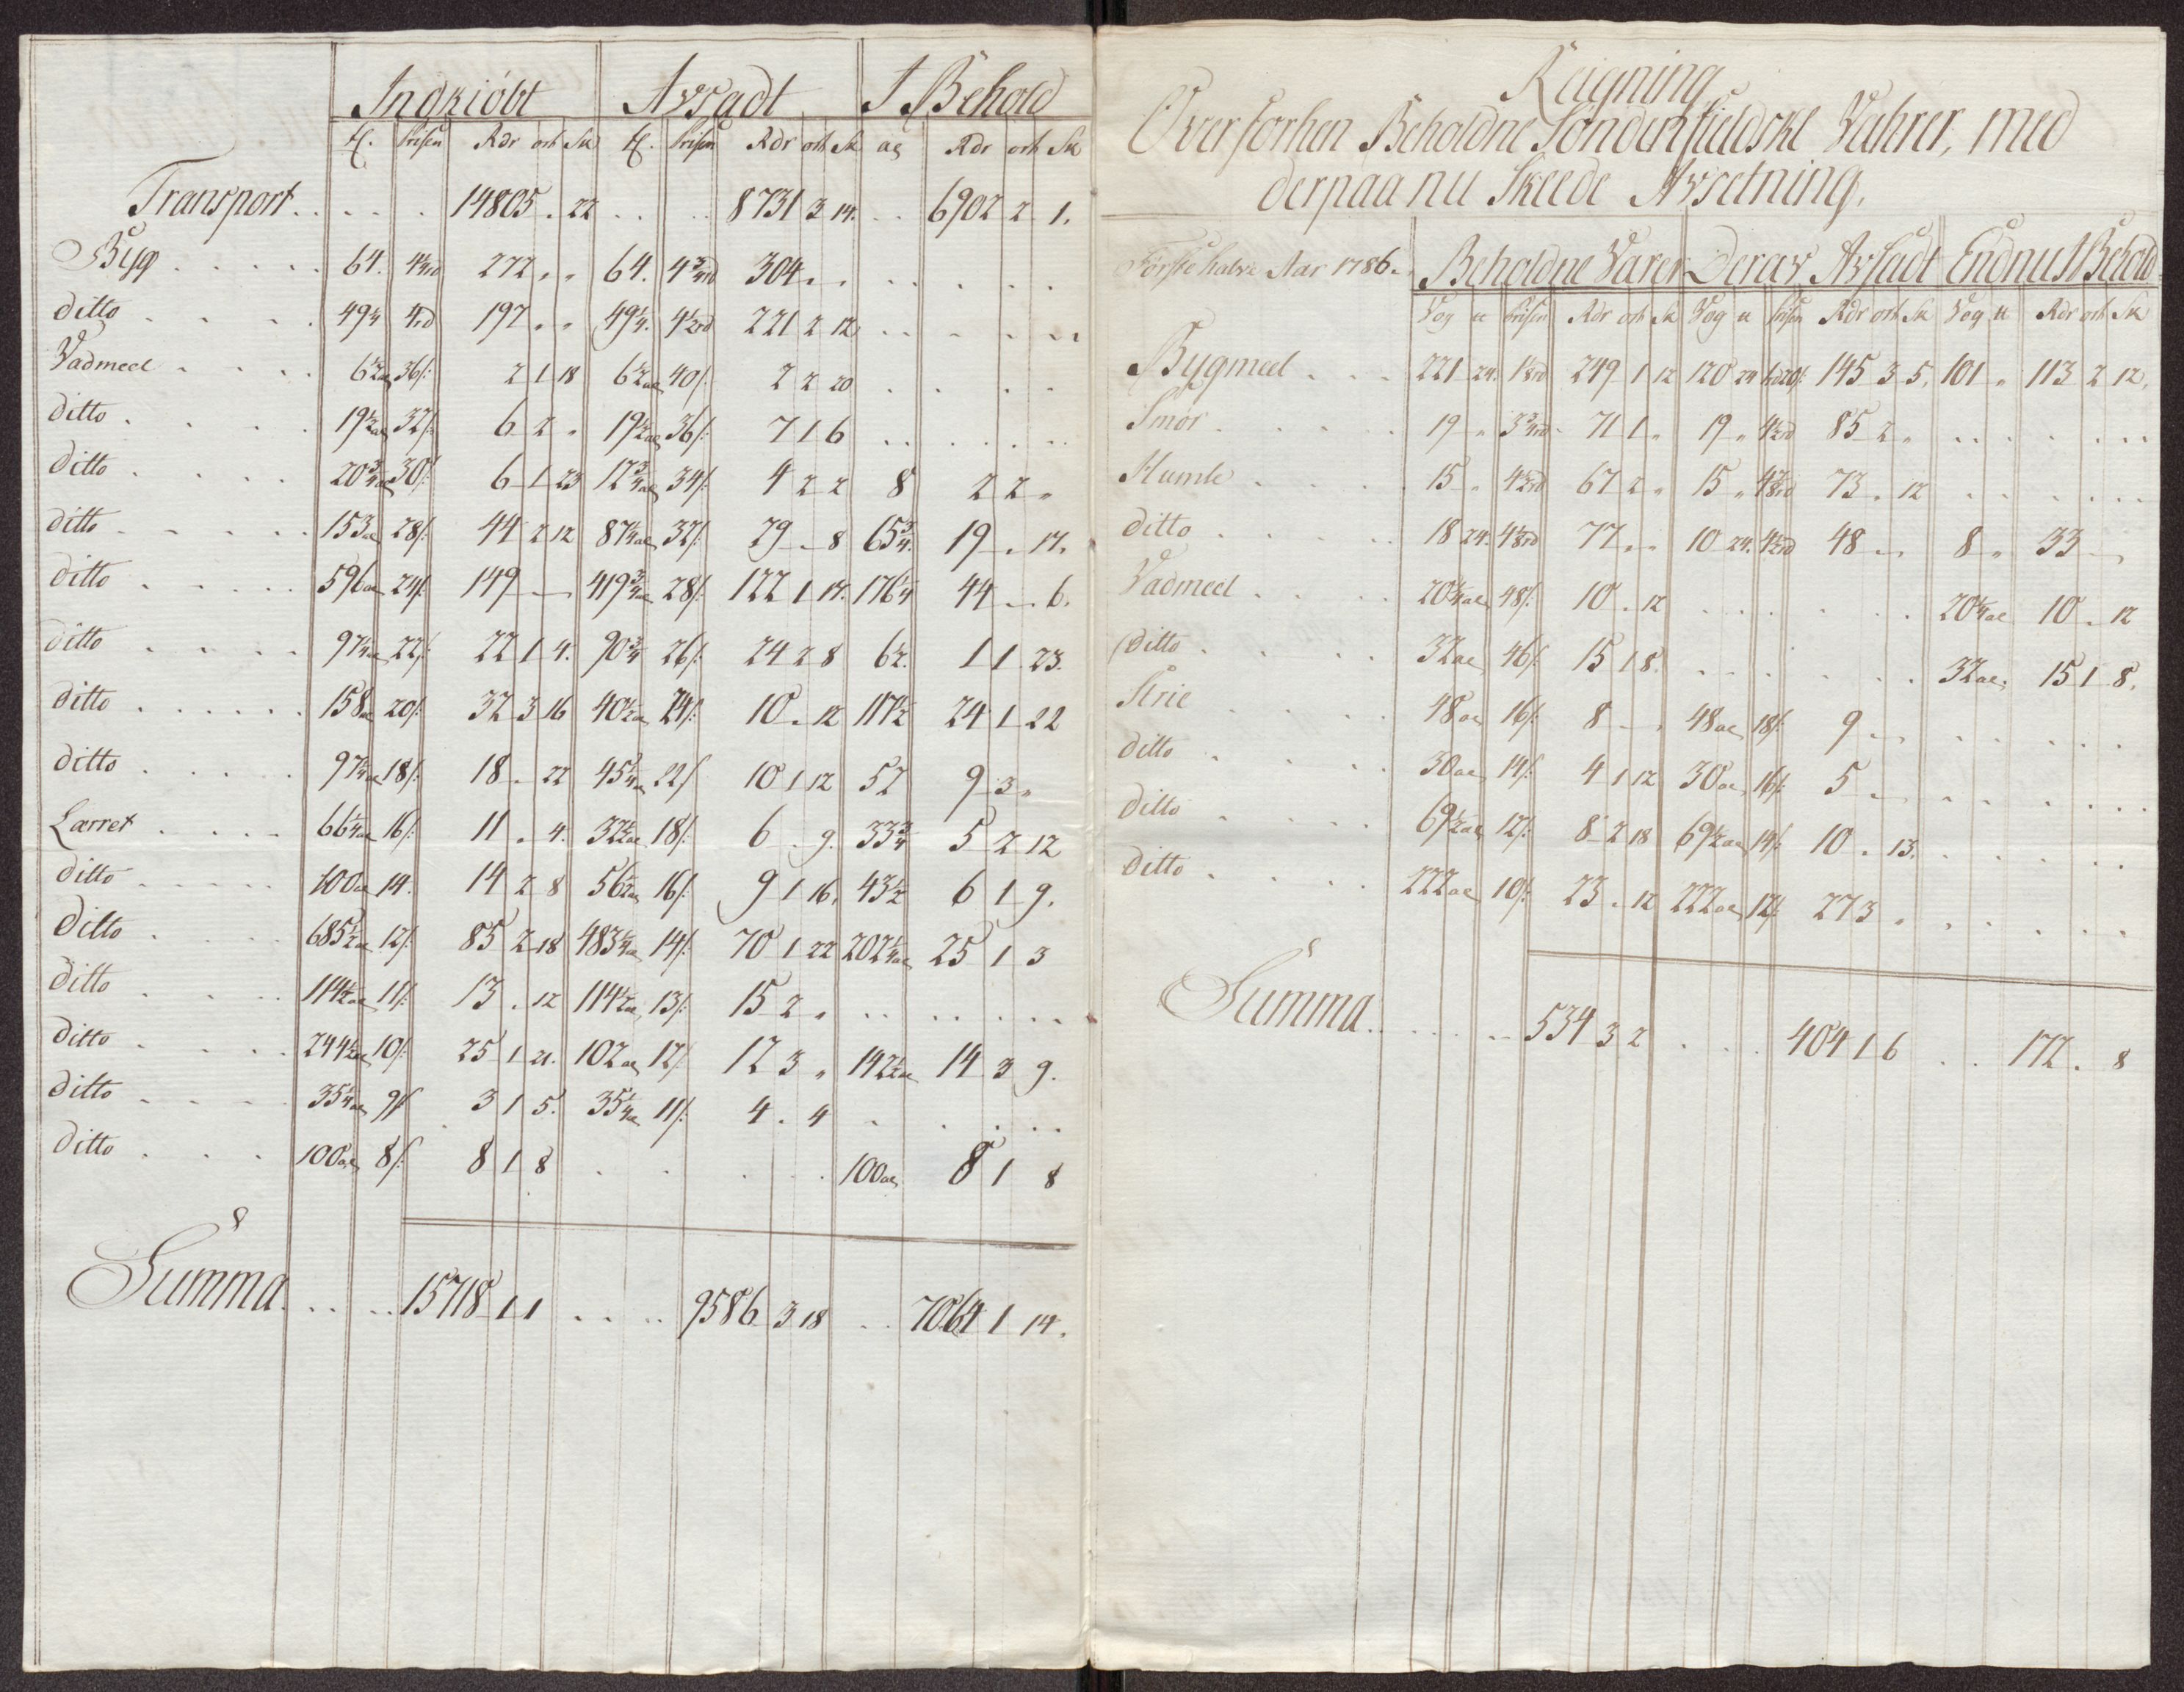 Indkiöbt Avsadt I Behold
Prisen Rdr ort Sk Prisen Rdr ort Sk Rdr ort Sk
Transport . . . . . 14805 . 22 . . . . 8731 3 14. . . 6902 2 1.
Byg . . . . . 64. 4¼rd 272 „ „ 64. 4¾rd 304 . . . . . . .
ditto . . . . 49¼ 4rd 197 „ „ 49¼. 4½rd 221 2 12 . . . . .
Vadmeel . . . . 6½al 36/: 2 1 18 6½al 40/: 2 2 20 . . . .
ditto . . . . 19½al 32/: 6 2 „ 19½al 36/: 7 1 6 . . . . .
ditto . . . . 20¾al 30/: 6 1 23 12¾al 34/: 4 2 2 8 2 2 „
ditto . . . . . 153al 28/: 44 2 12 87¼al 32/: 29 . 8 65¾. 19 . 17.
ditto . . . . . 596al 24/: 149 — 419¾al 28/: 122 1 17. 176¼ 44 — 6.
ditto . . . . 97¼al 22/: 22 1 4. 90¾ 26/: 24 2 8 6½. 1 1 23.
ditto . . . . . . 158al 20/: 32 3 16 40½al 24/: 10 . 12 117½ 24 1 22
ditto . . . . 97¼al 18/: 18 . 22 45¼al 22/ 10 1 12 52 9 3 „
Lærret . . . . 66¼al 16/: 11 . 4. 32½al 18/: 6 . 9. 33¾ 5 2 12
ditto . . . . . 100al 14. 14 2 8 56½al 16/: 9 1 16. 43½ 6 1 9.
ditto . . . . 685½al 12/: 85 2 18 483¼al 14/: 70 1 22 202¼al 25 1 3
ditto . . . . 114½al 11/: 13 . 12 114½al 13/: 15 2 „ . . . . . .
ditto . . . . 244½al 10/: 25 1 21. 102al 12/: 12 3 „ 142½al 14 3 9.
ditto . . . . 35¼al 9/ 3 1 5. 35¼al 11/: 4 . 4 . . . .
ditto . . . 100al 8/: 8 1 8 . . . . 100al 8 1 8
Summa . . . . 15718 1 1 . . . . 9586 3 18 . . 7064 1 14.
Reigning
Over forhen Beholdne Söndenfieldske Vahrer, med
derpaa nu Skeede Avsetning.
Förste halve Aar 1786. Beholdne Varer Derav Avsadt Endnu I Behold
Vog u Prisen Rdr ort Sk Vog u Prisen Rdr ort Sk Vog u Rdr ort Sk
Bygmeel . . . 221 24. 1⅛rd 249 1 12 120 24 1rd20/: 145 3 5. 101 „ 113 2 12.
Smör . . . . . 19 „ 3¾rd 71 1 „ 19 „ 4½rd 85 2 „ . . . . . .
Humle . . . . . 15 „ 4½rd 67 2 „ 15 „ 4⅞rd 73 . 12 . . . . . .
ditto . . . . . 18 24. 4⅛rd 77 „ „ 10 24. 4½rd 48 — 8 „ 33 —
Vadmeel . . . . 20¼al 48/: 10 . 12 . . . . . . 20¼al 10 . 12
ditto . . . . . 32al 46/: 15 1 8. . . . . . . 32al 15 1 8.
Strie . . . . 48al 16/: 8 — 48al 18/: 9 — . . . . . .
ditto . . . . 30al 14/: 4 1 12 30al 16/: 5 — . . . . . .
ditto . . . . . 69½al 12/: 8 2 18 69½al 14/: 10 . 13. . . . . .
ditto . . . . 222al 10/: 23 . 12 222al 12/: 27 3 „ . . . . .
Summa . . . . . . 534 3 2 . . . 404 1 6 . . 172 . 8